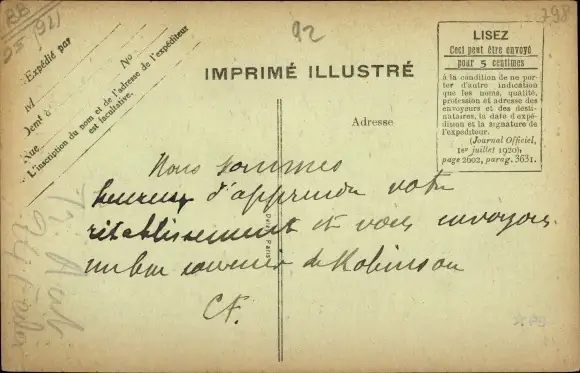 92
298
BB
Expédié par
M
Demt à
Rue
No
L'inscription du nom et de l'adresse de l'expéditeur
est facultative.
IMPRIMÉ ILLUSTRÉ
Adresse
LISEZ
Ceci peut être envoyé
pour 5 centimes
à la condition de ne por-
ter d'autre indication
que les noms, qualité,
profession et adresse des
envoyeurs et des desti-
nataires, la date d'expé-
dition et la signature de
l'expéditeur.
(Journal Officiel,
1er juillet 1920):
page 2602, parag. 3631.
Nous sommes
heureux d'apprendre votre
rétablissement et vous envoyons
un bon souvenir de Robinson
CF.